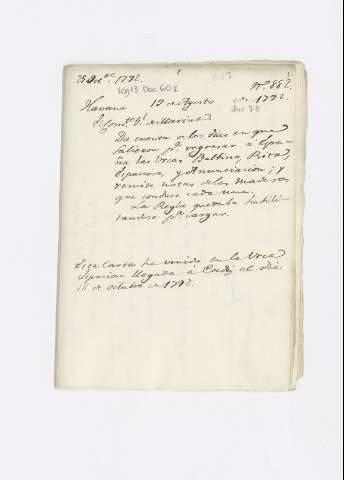 25 Oct.re 1792.
leg 13 Doc 601
N.º 882
Havana 19 de Agosto de 1792.
doc 75
El Com.te G.l de Marina
Da cuenta de los dias en que
salieron p.ª regresar á Espa-
ña las Urcas Balbina, Rita,
y Anunciacion; y
remite notas de las maderas
que conduce cada una.
La Regla quedaba habili-
tandose p.ª cargar.
Esta Carta ha venido en la Urca
llegada á Cadiz el dia
10 de Octubre de 1792.